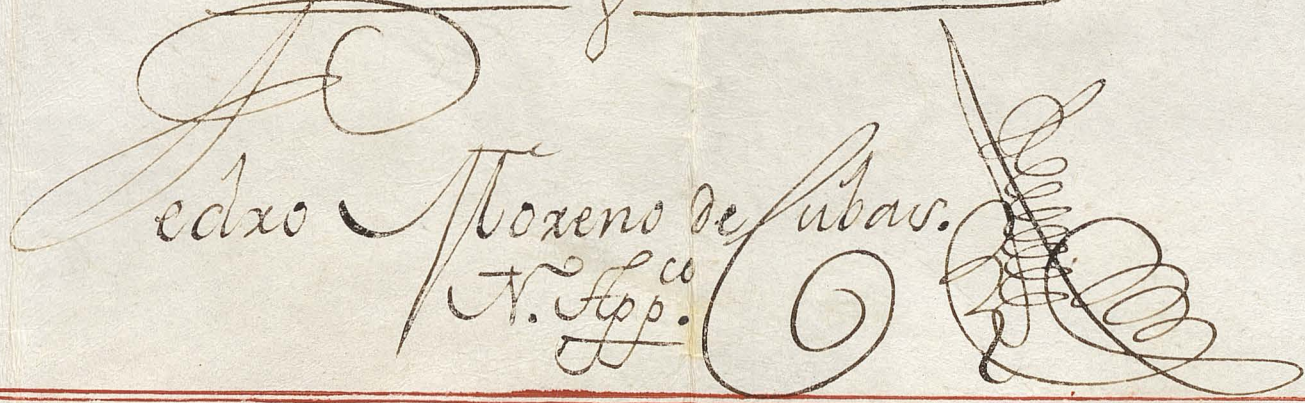 Pedro Moreno de Cubas.
N. App.co